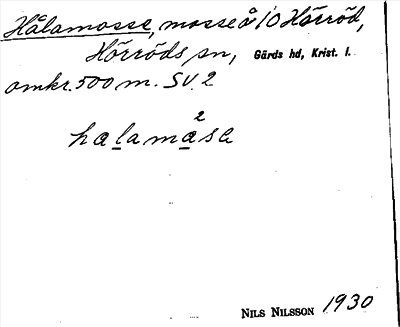 Hålamosse, mosse å 10 Hörröd,
Hörröds sn, Gärds hd, Krist. l.
omkr. 500 m. SV. 2
halamase
2
NILS NILSSON 1930